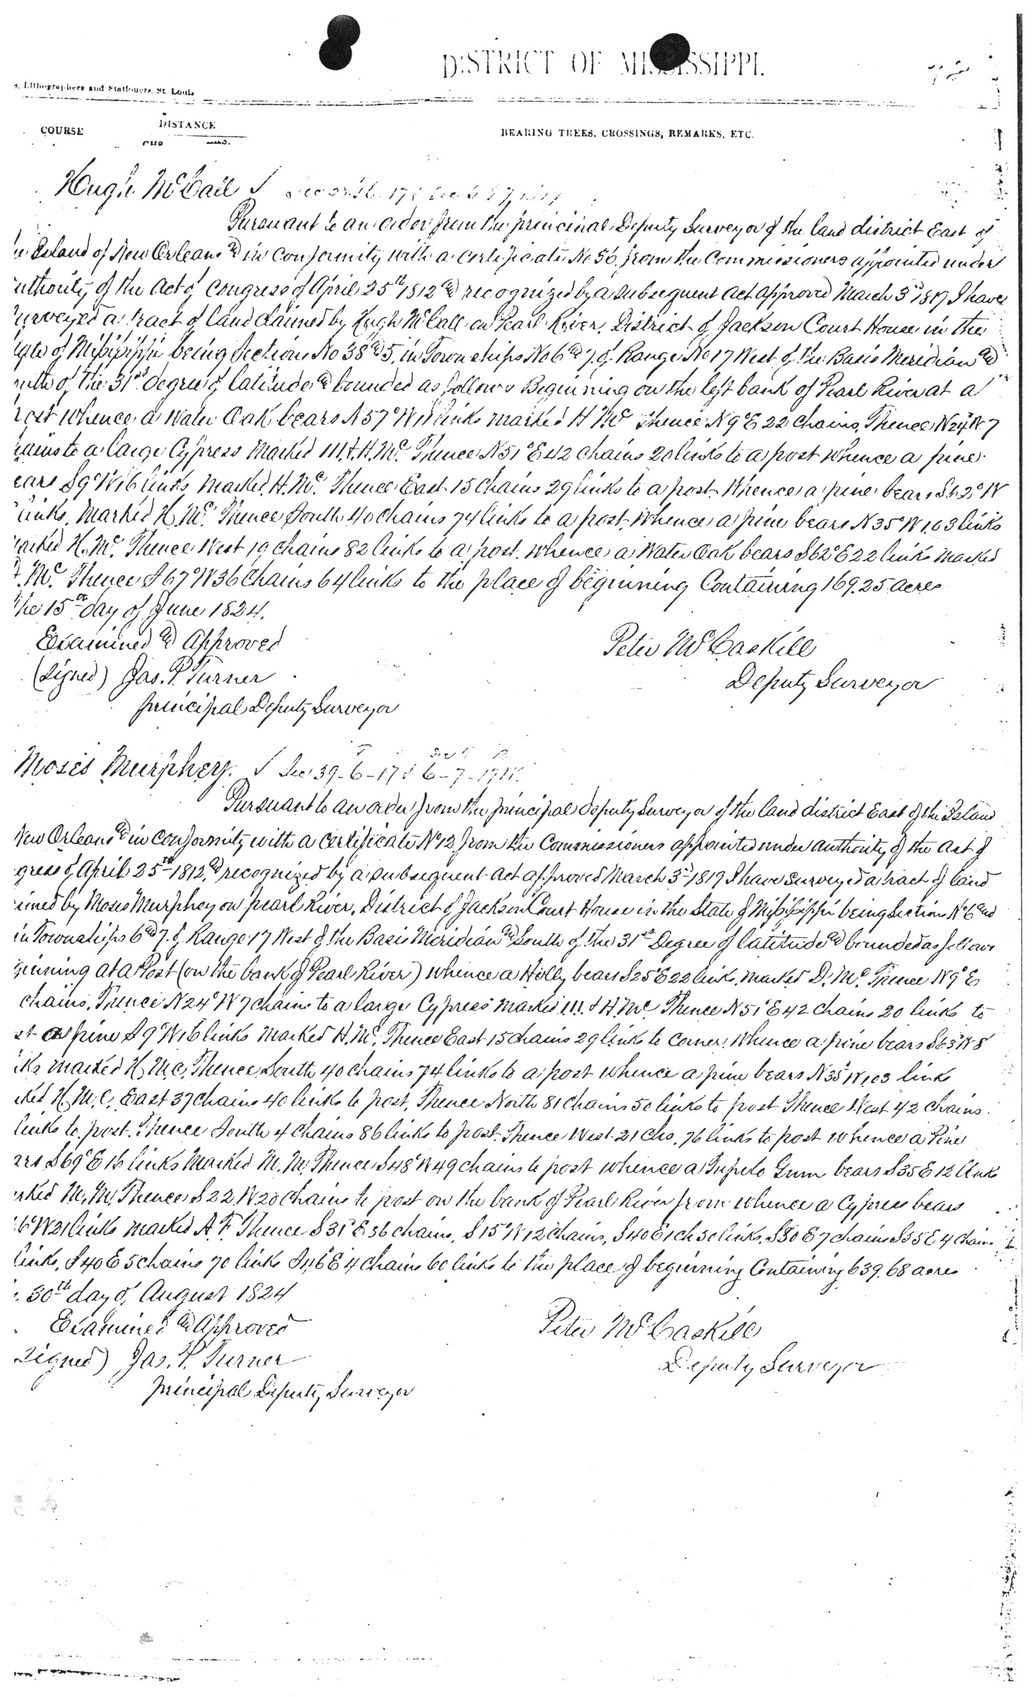 DISTRICT OF MISSISSIPPI.
Lithographers and Stationers, St. Louis
COURSE DISTANCE BEARING TREES, CROSSINGS, REMARKS, ETC.
Hugh McCall
Pursuant to an order from the principal Deputy Surveyor of the land district East of
Island of New Orleans & in conformity with a certificate No 56, from the Commissioners appointed under
authority of the Act of Congress of April 25th 1812 & recognized by a subsequent act approved March 3d 1819 I have
surveyed a tract of land claimed by Hugh McCall on Pearl River, District of Jackson Court House in the
of Mississippi being Sections No 38 & 5, in Townships No 6 & 7, of Range No 17 West of the Basis Meridian &
of the 31st degree of latitude & bounded as follows Beginning on the left bank of Pearl River at a
Post whence a Water Oak bears N57°W 11 links marked H Mc Thence N9°E 22 chains, Thence N24°W 7
chains to a large Cypress marked H. Mc. Thence N51°E 42 chains 20 links to a post whence a pine
bears S9°W 16 links marked H. Mc. Thence East 15 chains 29 links to a post Whence a pine bears S62°W
links, Marked H, Mc, Thence South 40 chains 74 links to a post, Whence a pine bears N35°W 103 links
marked H, Mc, Thence West 19 chains 82 links to a post, whence a Water Oak bears S62°E 22 links marked
Mc, Thence S67°W 36 chains 64 links to the place of beginning Containing 169.25 acres
the 15th day of June 1824.
Examined & Approved Peter McCaskill
(Signed) Jas. P. Turner Deputy Surveyor
principal Deputy Surveyor
Moses Murphey. Sec 39-6-17 & 6-7-17W.
Pursuant to an order from the principal deputy Surveyor of the land district East of the Island
New Orleans & in conformity with a certificate No 12 from the Commissioners appointed under authority of the Act of
gress of April 25th 1812, & recognized by a subsequent Act approved March 3d 1819 I have surveyed a tract of land
imed by Moses Murphey on pearl River, District of Jackson Court House in the State of Mississippi being Section No 6 and
in Townships 6 & 7, of Range 17 West of the Basis Meridian & South of the 31st Degree of latitude & bounded as follows
ginning at a Post (on the bank of Pearl River) whence a Holly bears S25°E 22 links, marked D, Mc, Thence N9°E
chains, Thence N24°W 7 chains to a large Cypress marked H. Mc Thence N51°E 42 chains 20 links to
pine S9°W 16 links marked H. Mc, Thence East 15 chains 29 links to corner, whence a pine bears S63°W 8
marked H, Mc, Thence South 40 chains 74 links to a post whence a pine bears N35°W 103 links
ked H, M, C, East 37 chains 40 links to post, Thence North 81 chains 50 links to post Thence West 42 chains
links to post, Thence South 4 chains 86 links to post, Thence West 21 chs. 76 links to post whence a Pine
ars S69°E 16 links Marked M, M, Thence S48°W 49 chains to post whence a Tupelo Gum bears S35E 12 links
rked M, M, Thence S22W 20 chains to post on the bank of Pearl River from whence a Cypress bears
6°W 21 links marked A. F. Thence S31°E 56 chains, S15°W 12 chains, S40E 1 ch 50 links, S80E 7 chains S35E 4 chains
links, S40E 5 chains 70 links S46E 4 chains 60 links to the place of beginning Containing 639.68 acres
30th day of August 1824
Examined & Approved Peter McCaskill
Signed) Jas. P. Turner Deputy Surveyor
principal Deputy Surveyor